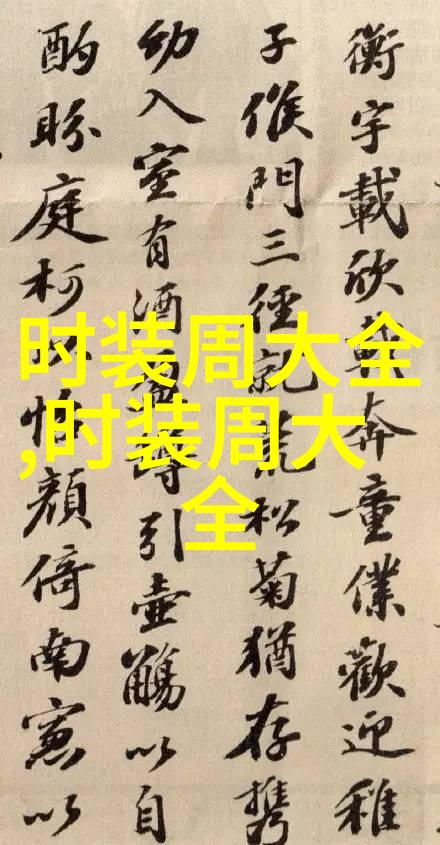 衡宇載欣載奔童僕歡迎稚
子候門三徑就荒松菊猶存攜
幼入室有酒盈樽引壺觴以自
酌眄庭柯以怡顏倚南窗以
时装周大全
,时装周大
全